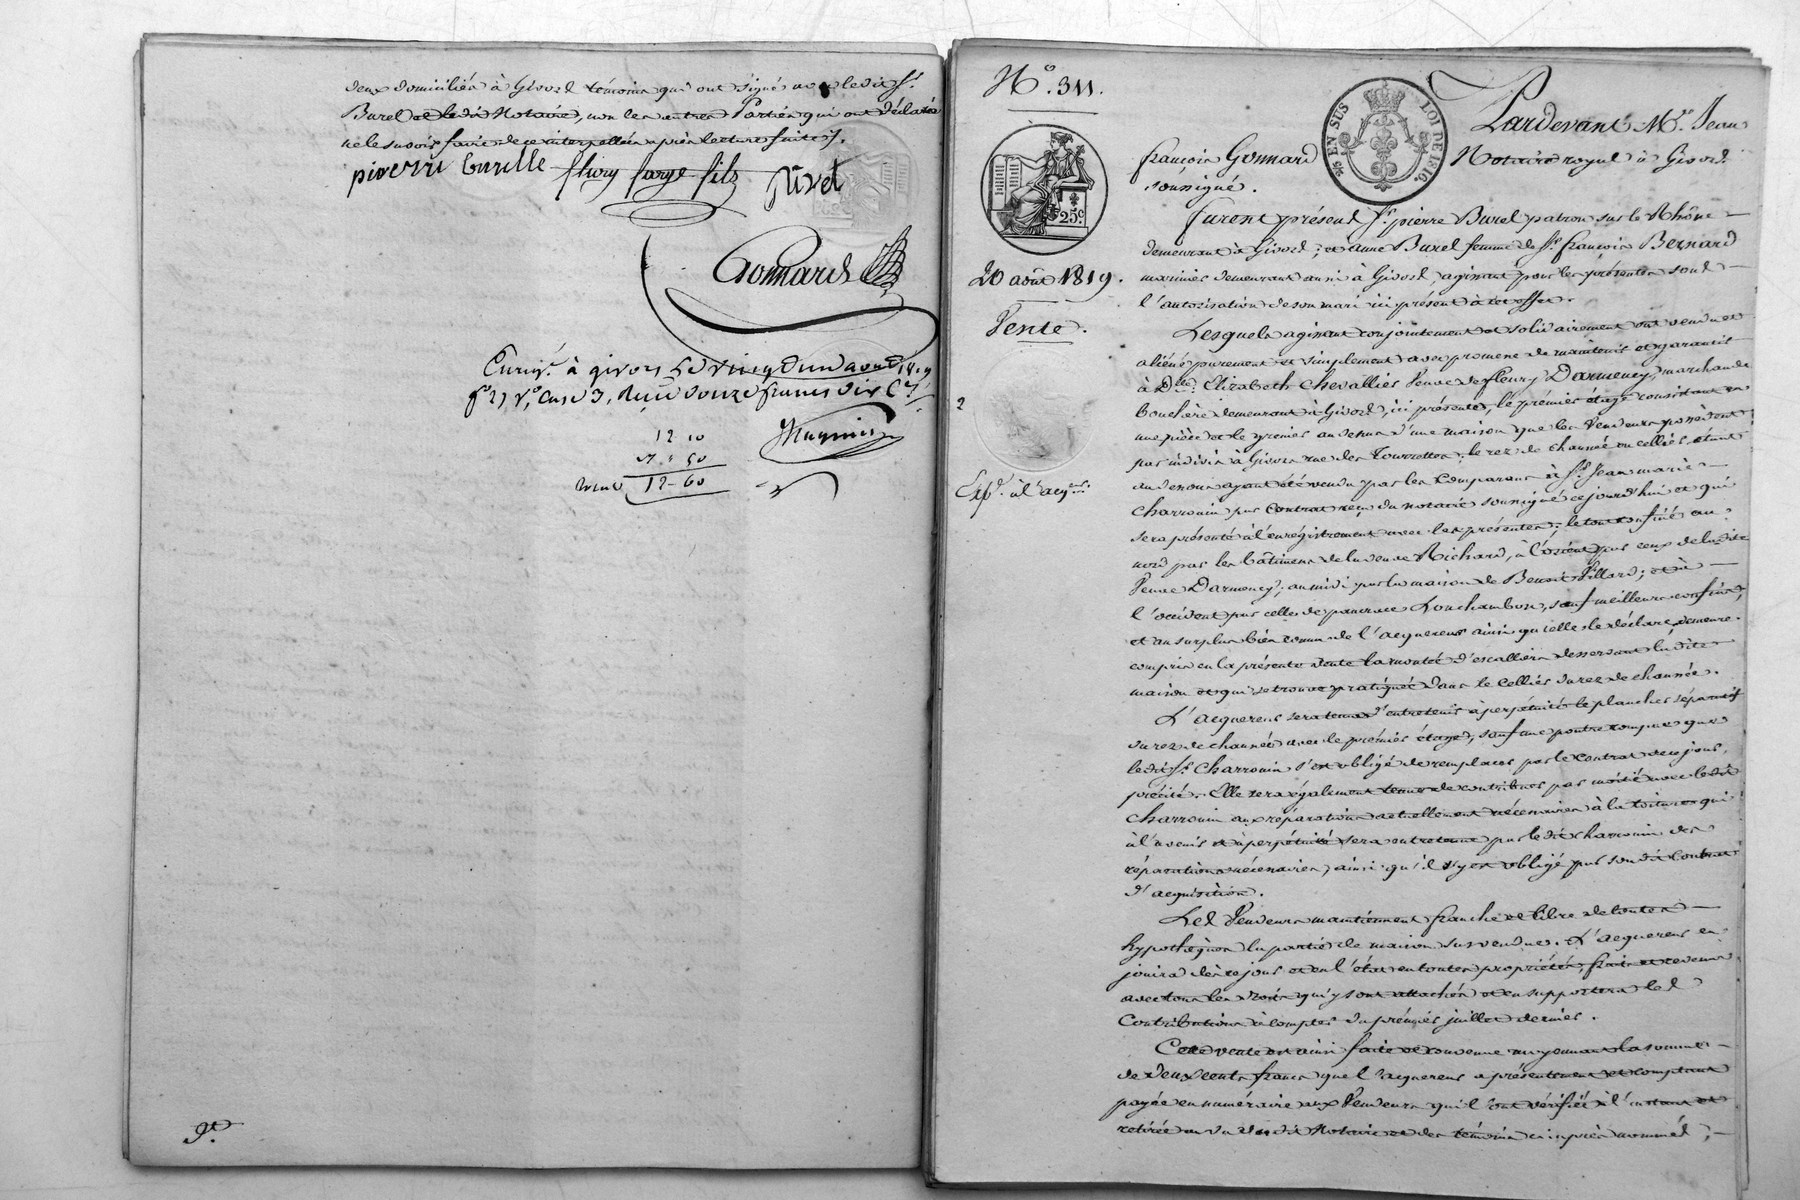 deux domiciliés à Givors témoins qui ont signé avec ledit Sr.
Burel et ledit Notaire, non les autres Parties qui ont déclaré
ne le savoir faire de ce interpellées après lecture faite.
pierre burelle fleury farge fils Jivet
Gonnard
Enregé. à givors le vingt un aout 1819
fo 27 vo, Case 3, Reçu douze francs dix Ces.
12 10
" 50
12-60
9t.
No. 311.
EN SUS
LOI DE 1816.
25c.
20 août 1819.
Vente.
2
Expd. à l'acqr.
Pardevant Me. Jean
françois Gonnard Notaire royal à Givors
soussigné.
furent présent Sr. pierre Burel patron sur le Rhône
demeurant à Givors; et anne Burel femme de Sr. françois Bernard
mariniers demeurant aussi à Givors, agissant pour les présentes sous
l'autorisation de son mari ici présent à cet effet.
Lesquels agissant conjointement et solidairement ont vendu et
aliéné purement et simplement avec promesse de maintenir et garantir
à Dlle. Elizabeth Chevallier Veuve de fleury Darmency, marchande
bouchère demeurant à Givors, ici présente, le premier étage consistant en
une pièce et le grenier au dessus d'une maison que les Vendeurs possèdent
par indivis à Givors rue des Tourrettes; le rez de chaussée ou cellier étant
au dessous ayant été vendu par les Comparans à Sr. Jean marie
Charrouin par Contrat reçu du notaire soussigné cejourd'hui et qui
sera présenté à l'enregistrement avec les présentes; le tout confiné au
nord par les bâtimens de la veuve Richard, à l'orient par ceux de la dite
Veuve Darmency; au midi par la maison de Benoit Villard; et à
l'occident par celle de pancrace Louchambon, sauf meilleurs confins,
et au surplus bien connu de l'acquereur ainsi qu'elle le déclare, demeure
compris en la présente vente la montée d'escalliers desservant la dite
maison et qui se trouve pratiquée dans le cellier du rez de chaussée.
L'acquereur sera tenu d'entretenir à perpétuité le plancher séparatif
du rez de chaussée avec le premier étage, sauf une poutre rompue que
ledit Sr. Charrouin s'est obligé de remplacer par le contrat de ce jour
précité. Elle sera également tenue de contribuer par moitié avec ledit
Charrouin aux réparations actuellement nécessaires à la toiture qui
à l'avenir et à perpétuité sera entretenue par ledit Charrouin des
réparations nécessaires, ainsi qu'il s'y est obligé par son dit Contrat
d'acquisition.
Les Vendeurs maintiennent franche et libre de toutes
hypothèques la partie de maison sus vendue. L'acquereur en
jouira dès ce jour et en l'état en toutes propriétés, fruits et revenus
avec tous les droits qui y sont attachés et en supportera les
Contributions à compter du premier juillet dernier.
Cette vente est ainsi faite et convenue moyennant la somme
de deux cents francs que l'acquereur a présentement et comptant
payée en numéraire aux Vendeurs qui l'ont vérifiée à l'instant et
retirée au vu du dit Notaire et des témoins ci après nommés;